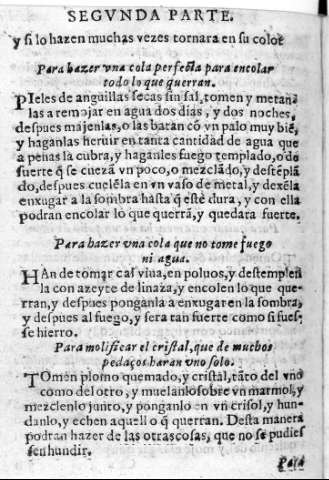 SEGVNDA PARTE.
y si lo hazen muchas vezes tornara en su color
Para hazer vna cola perfecta para encolar
todo lo que querran.
PIeles de anguillas secas sin sal, tomen y metan
las a remojar en agua dos dias, y dos noches,
despues majenlas, o las batan cō vn palo muy biē,
y haganlas heruir en tanta cantidad de agua que
a penas la cubra, y haganles fuego templado, o de
fuerte q̄ se cueza vn poco, o mezclādo, y destēpla
do, despues cuelēla en vn vaso de metal, y dexēla
enxugar a la sombra hasta q̄ estè dura, y con ella
podran encolar lo que querrā, y quedara fuerte.
Para hazer vna cola que no tome fuego
ni agua.
HAn de tomar cal viua, en poluos, y destemplen
la con azeyte de linaza, y encolen lo que que-
rran, y despues ponganla a enxugar en la sombra,
y despues al fuego, y sera tan fuerte como si fues-
se hierro.
Para molificar el cristal, que de muchos
pedaços haran vno solo.
TOmen plomo quemado, y cristal, tāto del vno
como del otro, y muelanlo sobre vn marmol, y
mezclenlo junto, y ponganlo en vn crisol, y hun-
danlo, y echen aquello q̄ querran. Desta manera
podran hazer de las otras cosas, que no se pudies
sen hundir.
Para